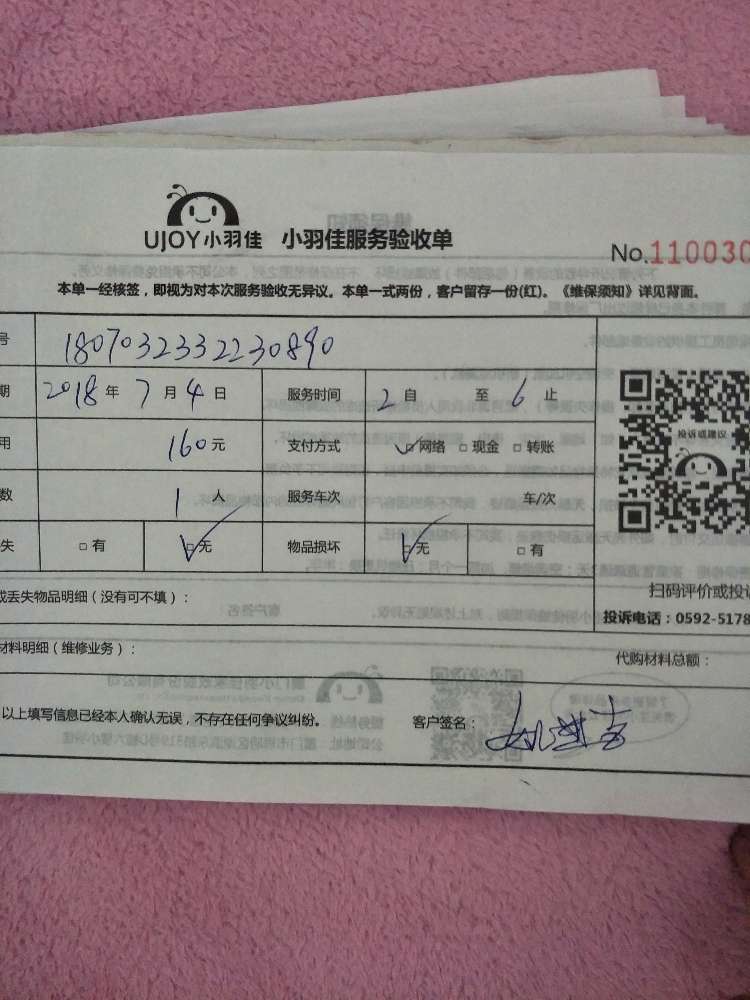 UJOY小羽佳 小羽佳服务验收单
No.110030
本单一经核签，即视为对本次服务验收无异议。本单一式两份，客户留存一份(红)。《维保须知》详见背面。
号 1807032332230890
期 2018 年 7 月 4 日 服务时间 2 自 至 6 止
用 160 元 支付方式 □网络 □现金 □转账
数 1 人 服务车次 车/次
失 □有 □无 物品损坏 □无 □有
投诉或建议
扫码评价或投诉
或丢失物品明细（没有可不填）：
投诉电话：0592-5178
材料明细（维修业务）： 代购材料总额：
以上填写信息已经本人确认无误，不存在任何争议纠纷。 客户签名：